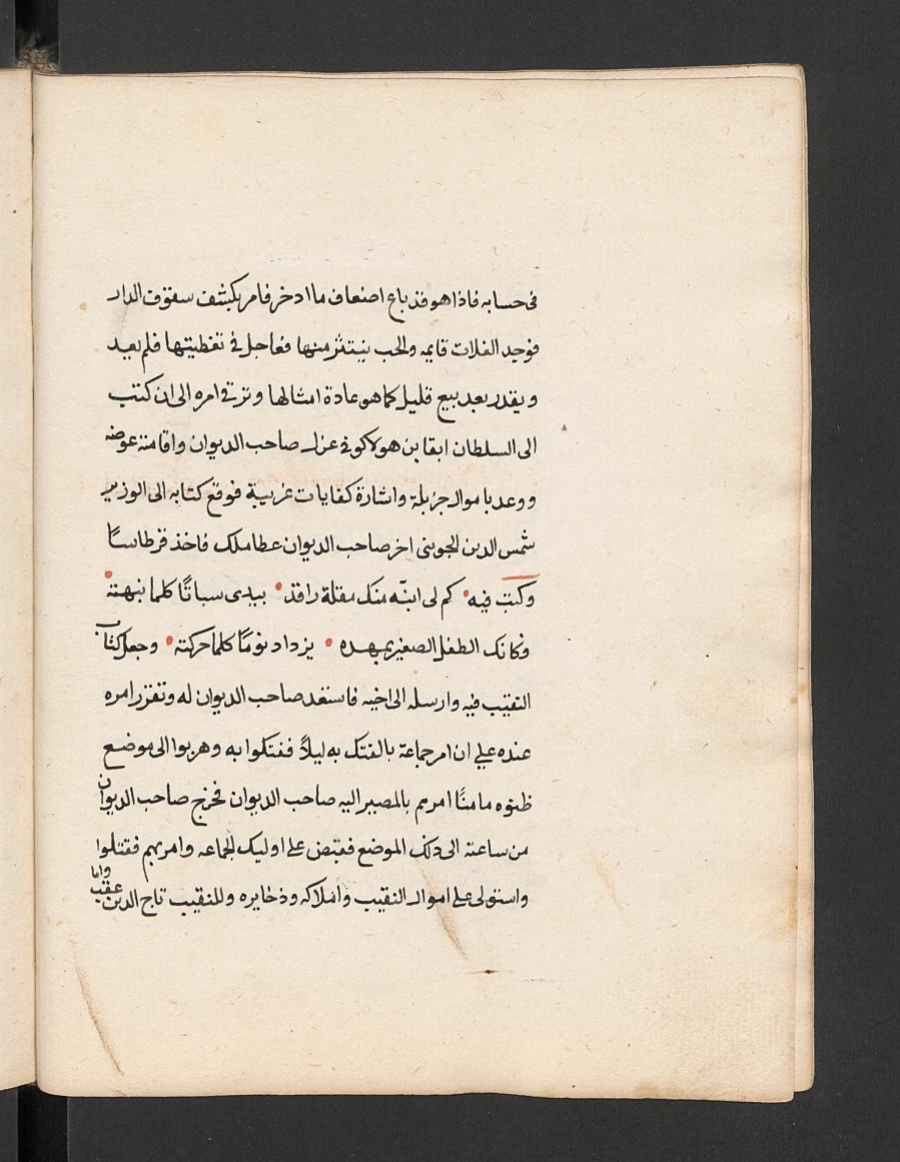 فى حسابه فاذا هو قد باع اضعاف ما ادخر فامر بكشف سقوف الدار
فوجد الغلات قايمه والحب ينتثر منها فعاجل فى تغطيتها فلم بعيد
ويقدر بعد بيع قليل كما هو عادة امثالها وترقى امره الى ان كتب
الى السلطان ابقا بن هولاكو فى عزل صاحب الديوان واقامته عوضه
ووعد باموال جزيلة واشارة كفايات غريبة فوقع كتابه الى الوزير
شمس الدين الجوينى اخر صاحب الديوان عطا ملك فاخذ قرطاسًا
وكتب فيه • كم لى ابنّه منك مقلة راقد • يبدى سباتًا كلما نبهته •
وكانك الطفل الصغير بمهده • يزداد نومًا كلما حركته • وجعل كتاب
النقيب فيه وارسله الى اخيه فاستعد صاحب الديوان له وتقرر امره
عنده على ان امر جماعة بالفتك به ليلاً ففتكوا به وهربوا الى موضع
ظنوه مامنًا امرهم بالمصير اليه صاحب الديوان فخرج صاحب الديوان
من ساعته الى ذلك الموضع فقبض على اوليك الجماعه وامر بهم فقتلوا
واستولى على اموال النقيب واملاكه وذخايره وللنقيب تاج الدين عقب
واما